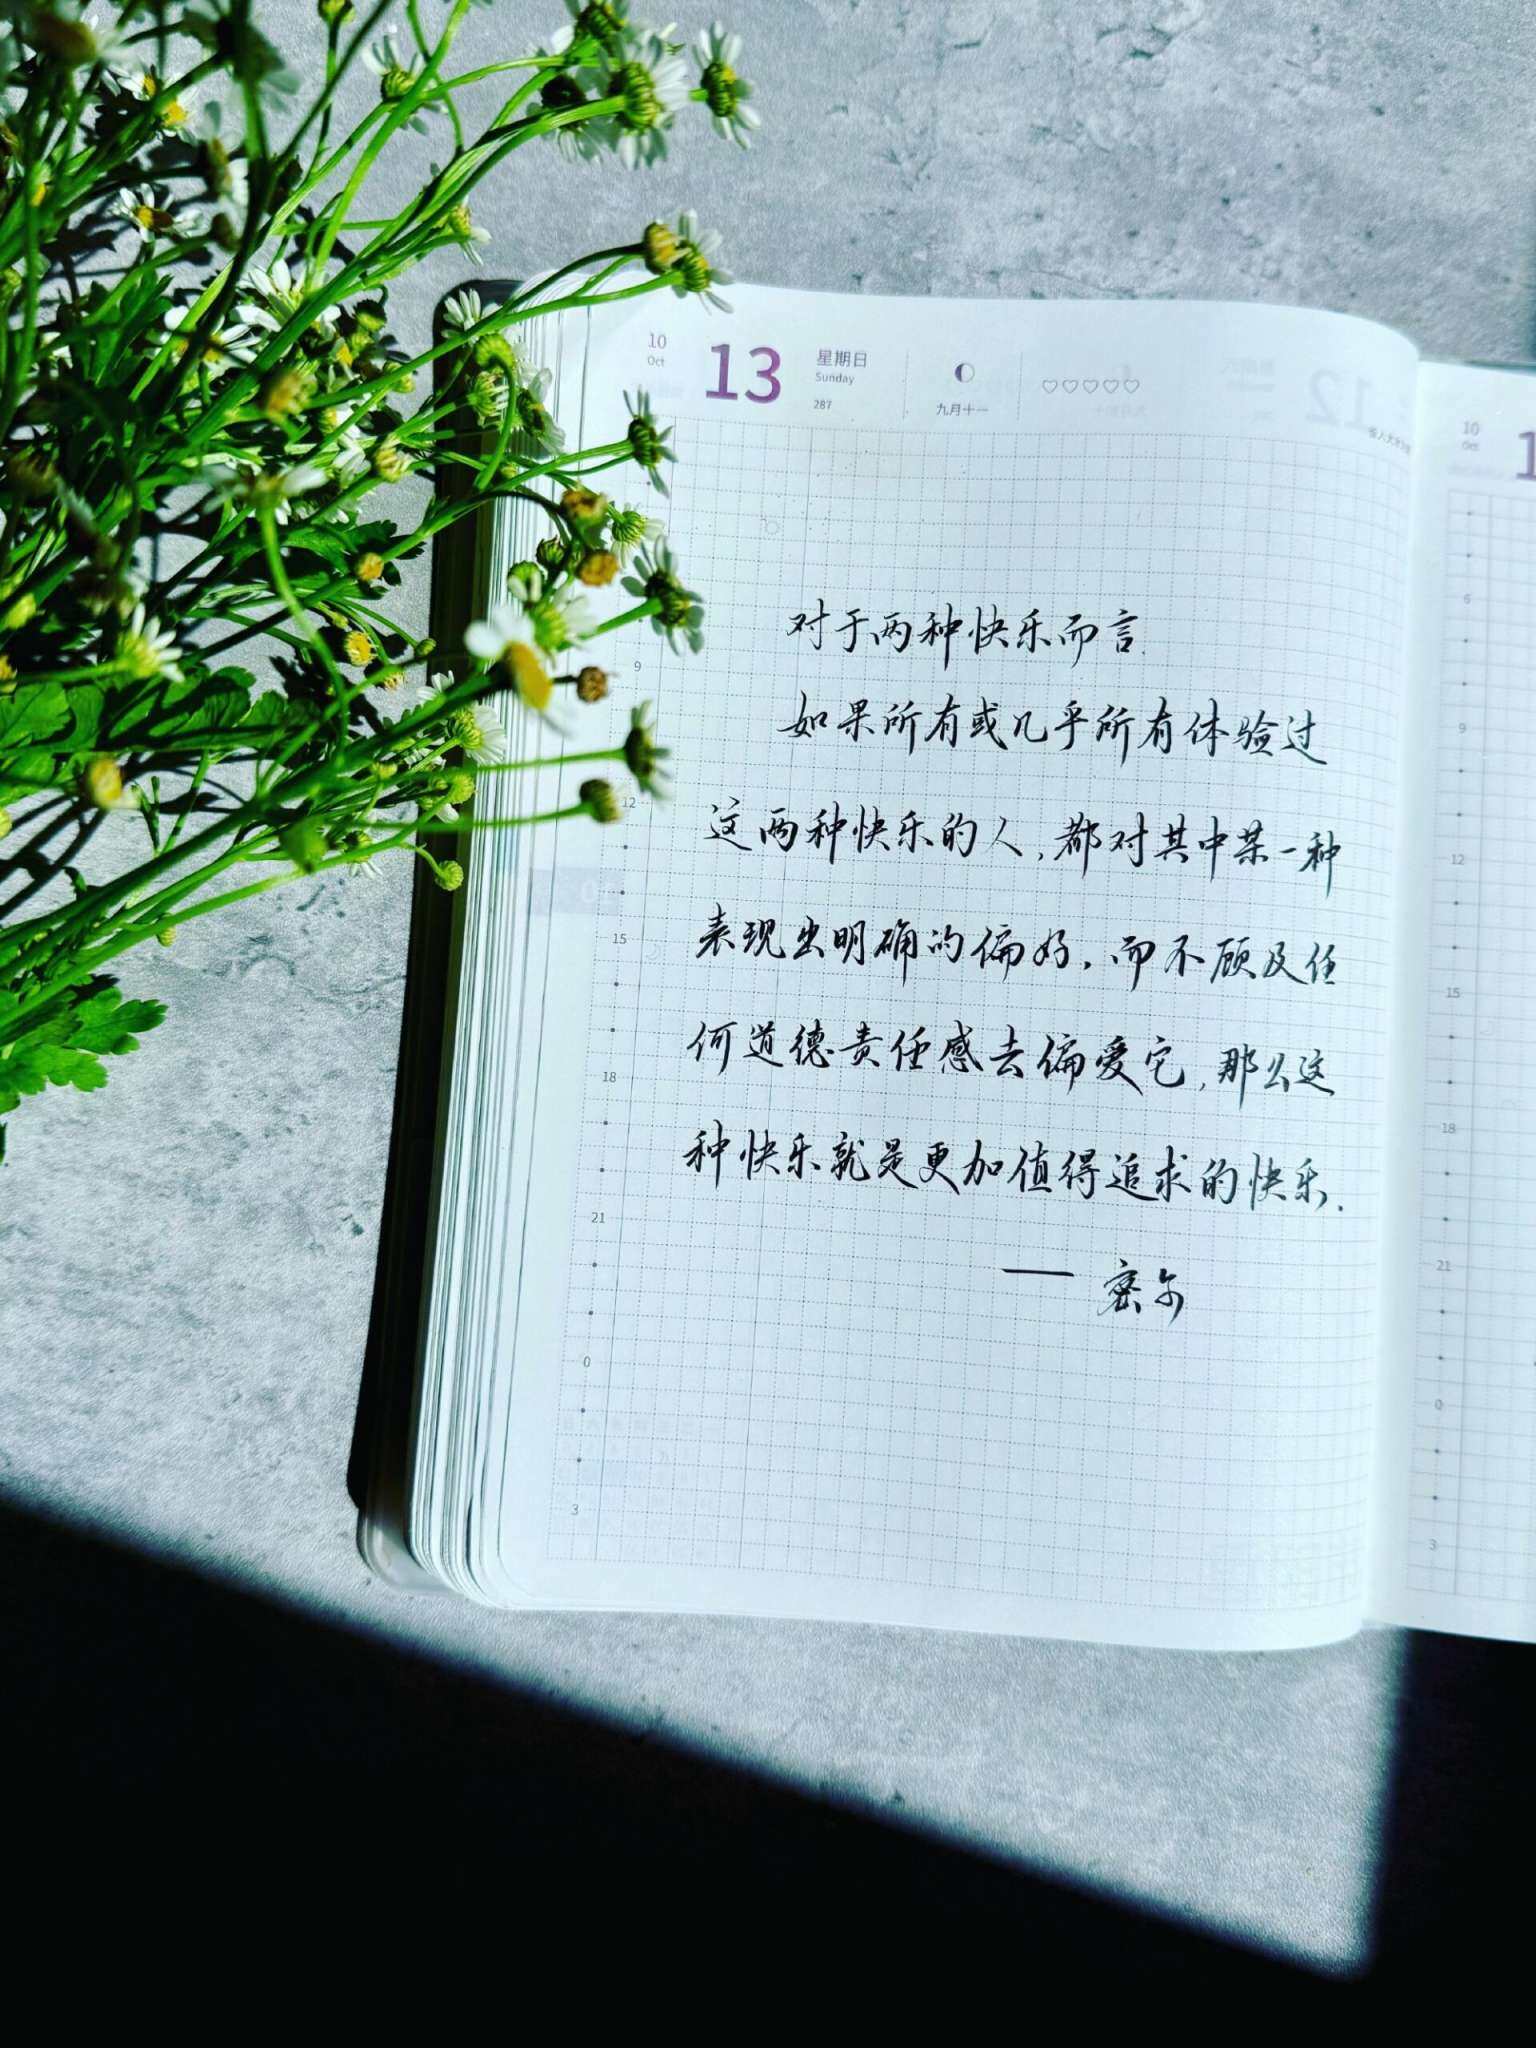 10
Oct
13
星期日
Sunday
287
九月十一
对于两种快乐而言.
如果所有或几乎所有体验过
这两种快乐的人,都对其中某一种
表现出明确的偏好,而不顾及任
何道德责任感去偏爱它,那么这
种快乐就是更加值得追求的快乐.
— 密尔
9
12
15
18
21
0
3
10
Oct
1
6
9
12
15
18
21
0
3